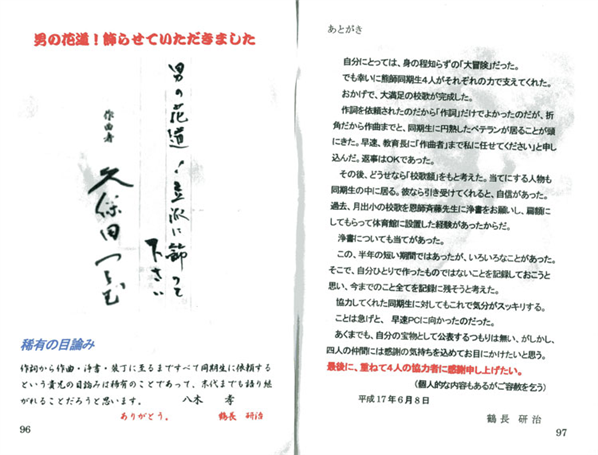 男の花道！飾らせていただきました
男の花道！立派に飾って
下さい
作曲者
久保田
稀有の目論み
作詞から作曲・浄書・装丁に至るまですべて同期生に依頼する
という貴兄の目論みは稀有のことであって、末代までも語り継
がれることだろうと思います。　　八木　孝
ありがとう。　　鶴長 研治
96
あとがき
自分にとっては、身の程知らずの「大冒険」だった。
でも幸いに熊師同期生4人がそれぞれの力で支えてくれた。
おかげで、大満足の校歌が完成した。
作詞を依頼されたのだから「作詞」だけでよかったのだが、折
角だから作曲までと、同期生に円熟したベテランが居ることが頭
にきた。早速、教育長に「作曲者」まで私に任せてください」と申し
込んだ。返事はOKであった。
その後、どうせなら「校歌額」をもと考えた。当てにする人物も
同期生の中に居る。彼なら引き受けてくれると、自信があった。
過去、月出小の校歌を恩師斉藤先生に浄書をお願いし、扁額に
してもらって体育館に設置した経験があったからだ。
浄書についても当てがあった。
この、半年の短い期間ではあったが、いろいろなことがあった。
そこで、自分ひとりで作ったものではないことを記録しておこうと
思い、今までのこと全てを記録に残そうと考えた。
協力してくれた同期生に対してもこれで気分がスッキリする。
ことは急げと、早速PCに向かったのだった。
あくまでも、自分の宝物として公表するつもりは無い、がしかし、
四人の仲間には感謝の気持ちを込めてお目にかけたいと思う。
最後に、重ねて４人の協力者に感謝申し上げたい。
（個人的な内容もあるがご容赦を乞う）
平成１７年６月８日
鶴長　研治
97